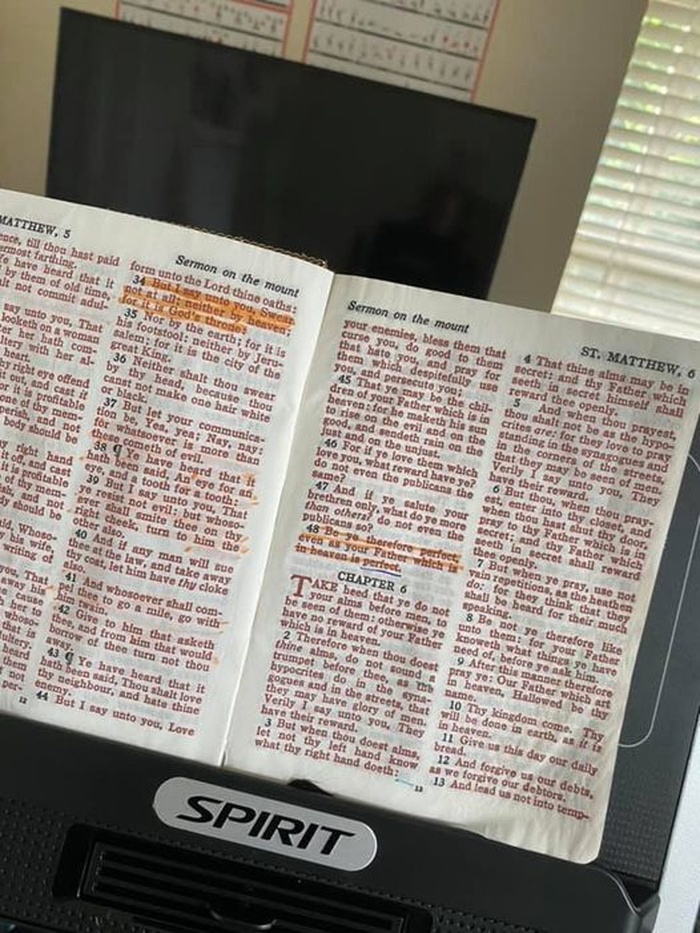 MATTHEW, 5
ence, till thou hast paid
ermost farthing.
e have heard that it
by them of old time,
alt not commit adul-
say unto you, That
looketh on a woman
ter her hath com-
ltery with her al-
heart.
y right eye offend
out, and cast it
or it is profitable
one of thy mem-
perish, and not
ody should be
y right hand
it of, and cast
it is profitable
of thy mem-
sh, and not
should be
id, Whoso-
his wife,
writing of
you, That
away his
e cause
her to
whoso-
ultery.
per-
12
Sermon on the mount
form unto the Lord thine oaths:
34 But I say unto you, Swear
not at all; neither by heaven;
for it is God's throne:
35 Nor by the earth; for it is
his footstool: neither by Jeru-
salem; for it is the city of the
great King.
36 Neither shalt thou swear
by thy head, because thou
canst not make one hair white
or black.
37 But let your communica-
tion be, Yea, yea; Nay, nay:
for whatsoever is more than
these cometh of evil.
38 ¶ Ye have heard that it
hath been said, An eye for an
eye, and a tooth for a tooth:
39 But I say unto you, That
ye resist not evil: but whoso-
ever shall smite thee on thy
right cheek, turn to him the
other also.
40 And if any man will sue
thee at the law, and take away
thy coat, let him have thy cloke
also.
41 And whosoever shall com-
pel thee to go a mile, go with
him twain.
42 Give to him that asketh
thee, and from him that would
borrow of thee turn not thou
away.
43 ¶ Ye have heard that it
hath been said, Thou shalt love
thy neighbour, and hate thine
enemy.
44 But I say unto you, Love
Sermon on the mount
your enemies, bless them that
curse you, do good to them
that hate you, and pray for
them which despitefully use
you, and persecute you;
45 That ye may be the chil-
dren of your Father which is in
heaven: for he maketh his sun
to rise on the evil and on the
good, and sendeth rain on the
just and on the unjust.
46 For if ye love them which
love you, what reward have ye?
do not even the publicans the
same?
47 And if ye salute your
brethren only, what do ye more
than others? do not even the
publicans so?
48 Be ye therefore perfect,
even as your Father which is
in heaven is perfect.
CHAPTER 6
TAKE heed that ye do not
your alms before men, to
be seen of them: otherwise ye
have no reward of your Father
which is in heaven.
2 Therefore when thou doest
thine alms, do not sound a
trumpet before thee, as the
hypocrites do in the syna-
gogues and in the streets, that
they may have glory of men.
Verily I say unto you, They
have their reward.
3 But when thou doest alms,
let not thy left hand know
what thy right hand doeth:
13
ST. MATTHEW, 6
4 That thine alms may be in
secret: and thy Father which
seeth in secret himself shall
reward thee openly.
5 And when thou prayest,
thou shalt not be as the hypo-
crites are: for they love to pray
standing in the synagogues and
in the corners of the streets,
that they may be seen of men.
Verily I say unto you, They
have their reward.
6 But thou, when thou pray-
est, enter into thy closet, and
when thou hast shut thy door,
pray to thy Father which is in
secret; and thy Father which
seeth in secret shall reward
thee openly.
7 But when ye pray, use not
vain repetitions, as the heathen
do: for they think that they
shall be heard for their much
speaking.
8 Be not ye therefore like
unto them: for your Father
knoweth what things ye have
need of, before ye ask him.
9 After this manner therefore
pray ye: Our Father which art
in heaven, Hallowed be thy
name.
10 Thy kingdom come. Thy
will be done in earth, as it is
in heaven.
11 Give us this day our daily
bread.
12 And forgive us our debts,
as we forgive our debtors.
13 And lead us not into temp-
SPIRIT